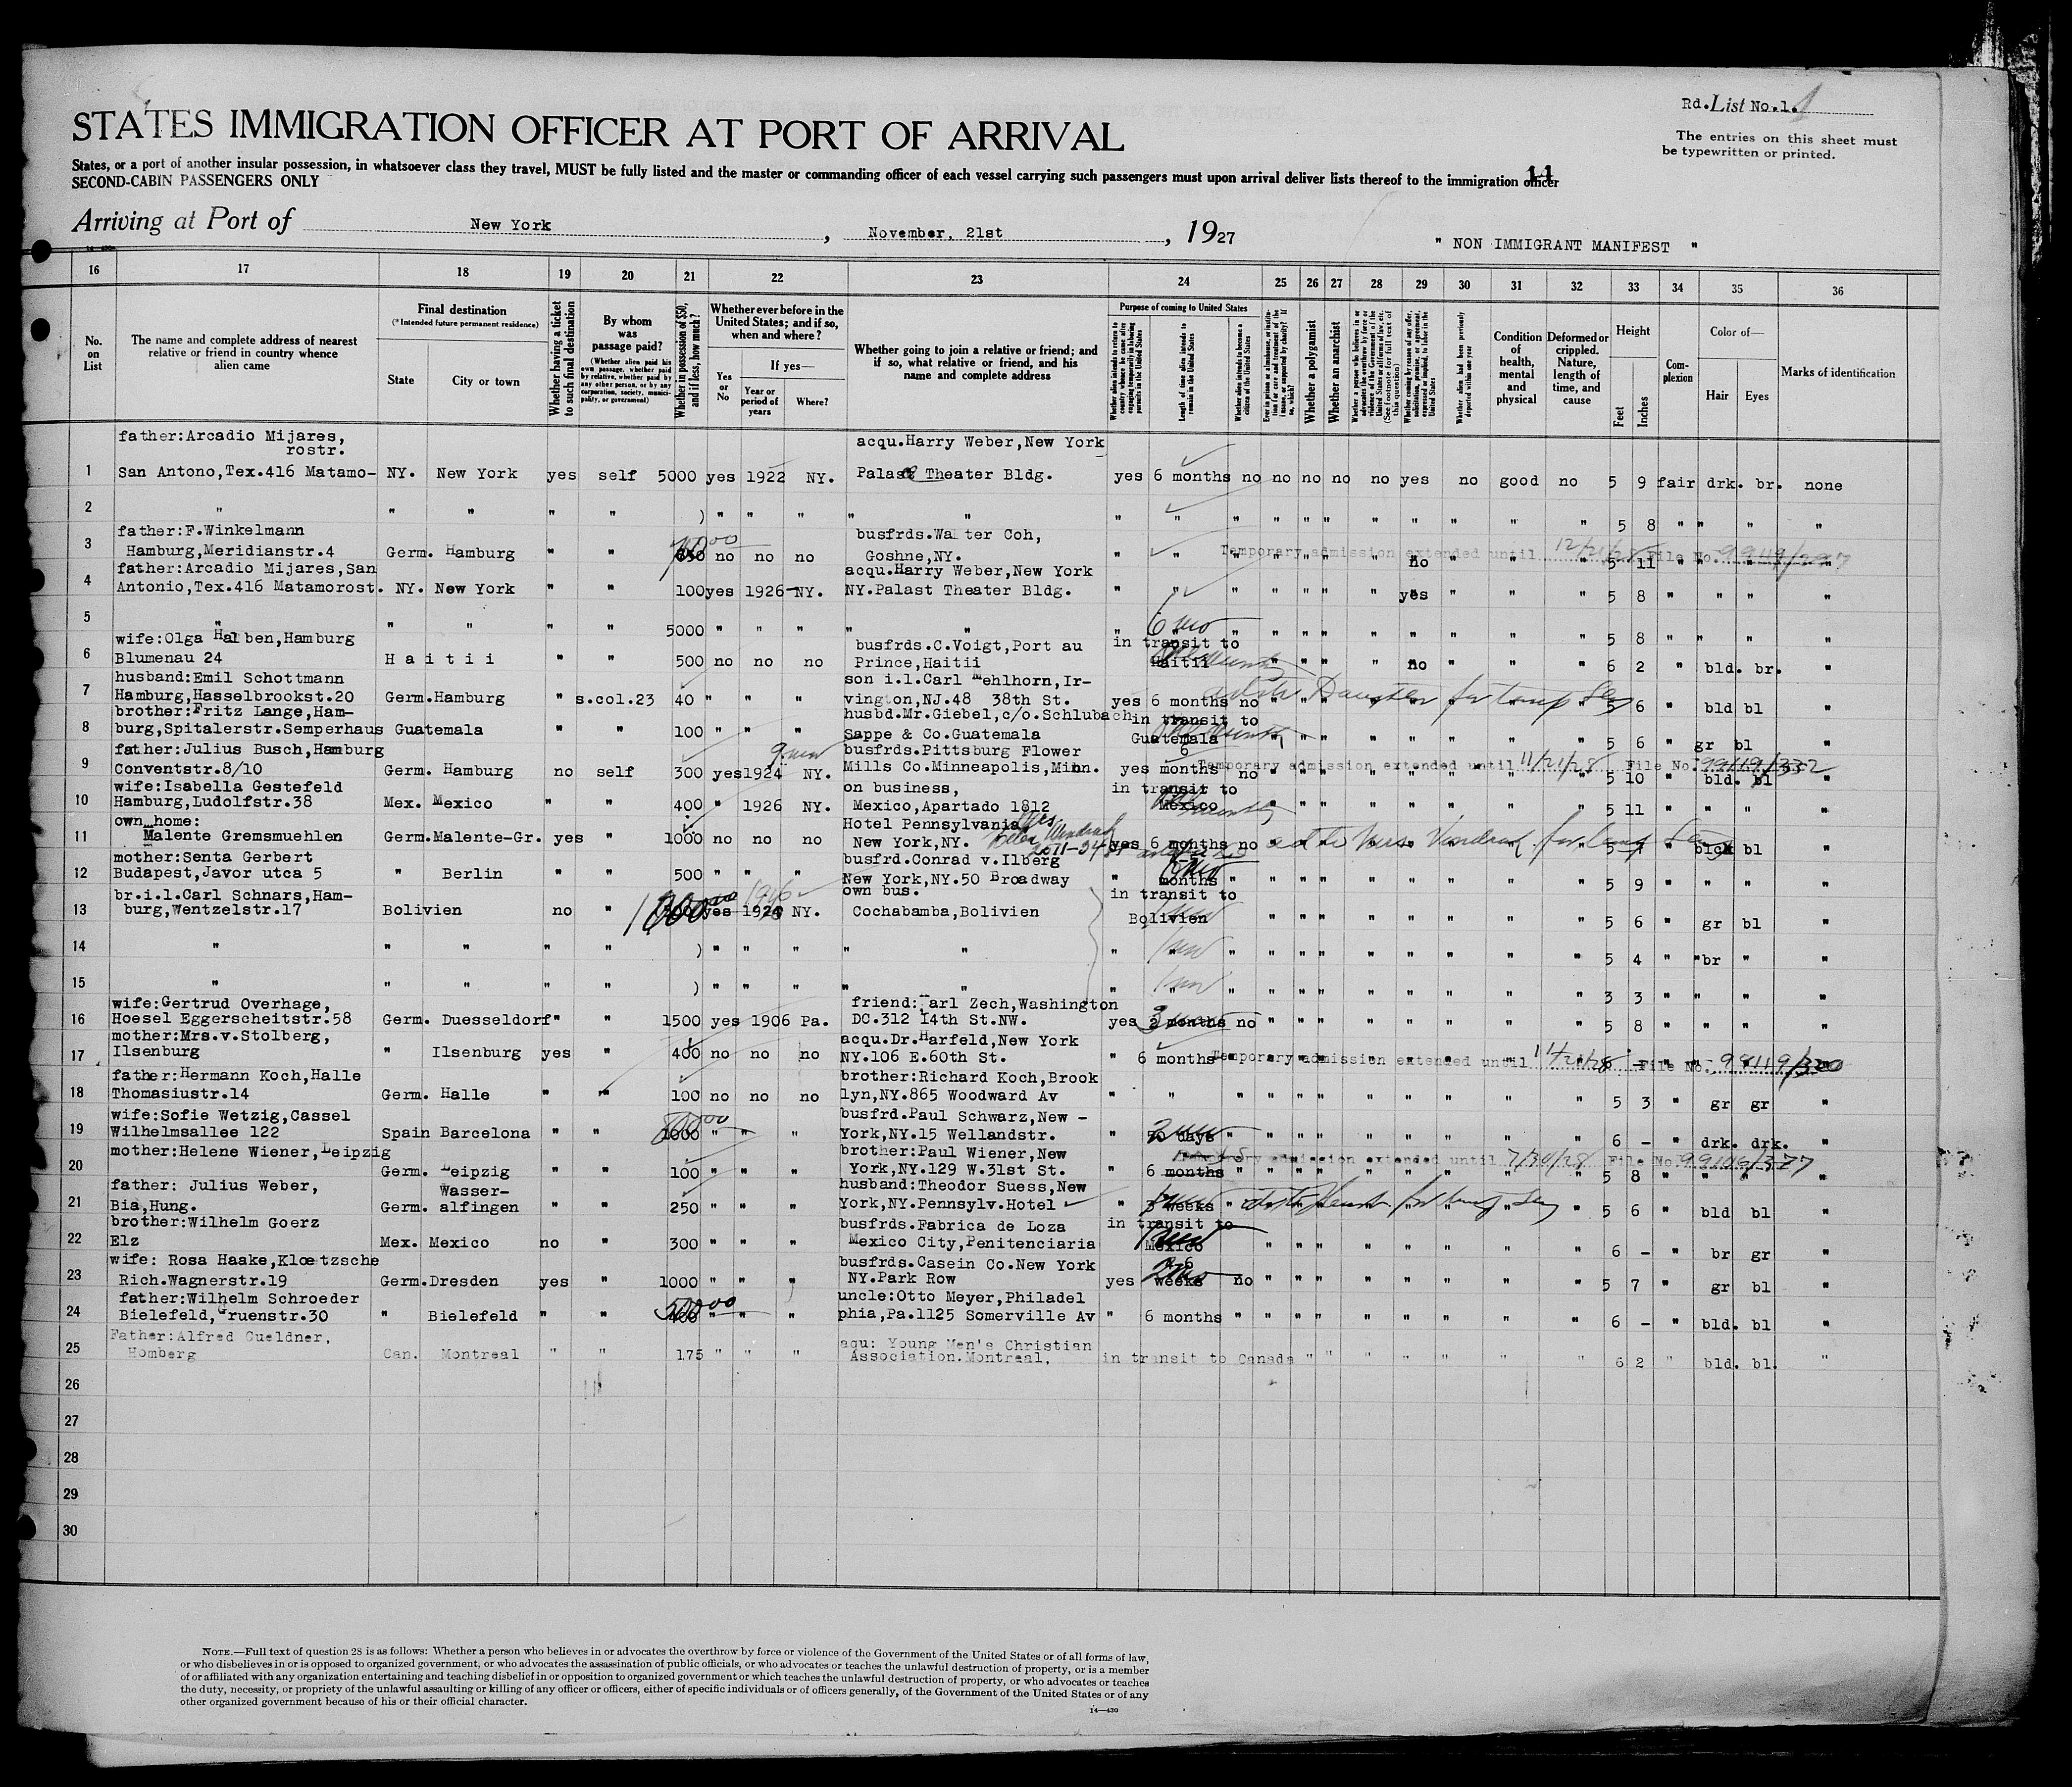 Rd. List No. 1.
STATES IMMIGRATION OFFICER AT PORT OF ARRIVAL
The entries on this sheet must
be typewritten or printed.
States, or a port of another insular possession, in whatsoever class they travel, MUST be fully listed and the master or commanding officer of each vessel carrying such passengers must upon arrival deliver lists thereof to the immigration officer
11
SECOND-CABIN PASSENGERS ONLY
Arriving at Port of New York, November, 21st, 1927
" NON IMMIGRANT MANIFEST "
16 17 18 19 20 21 22 23 24 25 26 27 28 29 30 31 32 33 34 35 36
No. on List
The name and complete address of nearest relative or friend in country whence alien came
Final destination
(*Intended future permanent residence)
State
City or town
Whether having a ticket to such final destination
By whom was passage paid?
(Whether alien paid his own passage, whether paid by relative, whether paid by any other person, or by any corporation, society, municipality, or government)
Whether in possession of $50, and if less, how much?
Whether ever before in the United States; and if so, when and where?
Yes or No
If yes—
Year or period of years
Where?
Whether going to join a relative or friend; and if so, what relative or friend, and his name and complete address
Purpose of coming to United States
Whether alien intends to return to country whence he came after engaging temporarily in laboring pursuits in the United States
Length of time alien intends to remain in the United States
Whether alien intends to become a citizen of the United States
Whether a polygamist
Whether an anarchist
Whether alien had been previously deported within one year
Condition of health, mental and physical
Deformed or crippled. Nature, length of time, and cause
Height
Feet
Inches
Complexion
Color of—
Hair
Eyes
Marks of identification
father:Arcadio Mijares, acqu.Harry Weber,New York
rostr.
1 San Antono,Tex.416 Matamo- NY. New York yes self 5000 yes 1922 NY. Palast Theater Bldg. yes 6 months no no no no no yes no good no 5 9 fair drk. br. none
2 " " " " " ) " " " " " " " " " " " " " " " " 5 8 " " " "
father:F.Winkelmann busfrds.Walter Coh,
3 Hamburg,Meridianstr.4 Germ. Hamburg " " no no no Goshne,NY. " " Temporary admission extended until 12/21/28 File No. no 5 11
father:Arcadio Mijares,San acqu.Harry Weber,New York
4 Antonio,Tex.416 Matamorost. NY. New York " " 100 yes 1926 NY. NY.Palast Theater Bldg. " " " " " " " yes " " " 5 8 " " " "
5 " " " " " 5000 " " " " " " 6 mo " " " " " " " " " 5 8 " " " "
wife:Olga Halben,Hamburg busfrds.C.Voigt,Port au in transit to
6 Blumenau 24 Haitii " " 500 no no no Prince,Haitii Haitii " " " " no " " " 6 2 " bld. br. "
husband:Emil Schottmann son i.l.Carl Mehlhorn,Ir-
7 Hamburg,Hasselbrookst.20 Germ.Hamburg " s.col.23 40 " " " vington,NJ.48 38th St. yes 6 months no 5 6 " bld bl "
brother:Fritz Lange,Ham- husbd.Mr.Giebel,c/o.Schlubach in transit to
8 burg,Spitalerstr.Semperhaus Guatemala " " 100 " " " Sappe & Co.Guatemala Guatemala " " " " " " " " 5 6 " gr bl "
father:Julius Busch,Hamburg busfrds.Pittsburg Flower 6
9 Conventstr.8/10 Germ. Hamburg no self 300 yes 1924 NY. Mills Co.Minneapolis,Minn. yes months no Temporary admission extended until 11/21/28 File No. 99119/332 5 10 bld. bl "
wife:Isabella Gestefeld on business, in transit to
10 Hamburg,Ludolfstr.38 Mex. Mexico " " 400 " 1926 NY. Mexico,Apartado 1812 Mexico " " " " " " " " 5 11 " " " "
own home: Hotel Pennsylvania
11 Malente Gremsmuehlen Germ.Malente-Gr. yes " 1000 no no no New York,NY. yes 6 months no bl "
mother:Senta Gerbert busfrd.Conrad v.Ilberg
12 Budapest,Javor utca 5 " Berlin " " 500 " " " New York,NY.50 Broadway " months " " " " " " " " " 5 9 " " " "
br.i.l.Carl Schnars,Ham- own bus. in transit to
13 burg,Wentzelstr.17 Bolivien no " yes NY. Cochabamba,Bolivien Bolivien " " " " " " " " 5 6 " gr bl "
14 " " " " " ) " " " " " " " " " " " " " " " 5 4 " br " "
15 " " " " " ) " " " " " " " " " " " " " " " 3 3 " " " "
wife:Gertrud Overhage, friend:Carl Zech,Washington
16 Hoesel Eggerscheitstr.58 Germ. Duesseldorf " " 1500 yes 1906 Pa. DC.312 14th St.NW. yes months no " " " " " " " " 5 8 " " " "
mother:Mrs.v.Stolberg, acqu.Dr.Harfeld,New York
17 Ilsenburg " Ilsenburg yes " 400 no no no NY.106 E.60th St. " 6 months Temporary admission extended until 11/21/28 File No. 99119/320
father:Hermann Koch,Halle brother:Richard Koch,Brook
18 Thomasiustr.14 Germ. Halle " " 100 no no no lyn,NY.865 Woodward Av " " " " " " " " " " " 5 3 " gr gr "
wife:Sofie Wetzig,Cassel busfrd.Paul Schwarz,New -
19 Wilhelmsallee 122 Spain Barcelona " " 1000 " " " York,NY.15 Wellandstr. " days " " " " " " " " " 6 - " drk. drk. "
mother:Helene Wiener,Leipzig brother:Paul Wiener,New
20 Germ. Leipzig " " 100 " " " York,NY.129 W.31st St. " 6 months Temporary admission extended until 7/30/28 File No. 99106/377 5 8 " " " "
father: Julius Weber, Wasser- husband:Theodor Suess,New
21 Bia,Hung. Germ. alfingen " " 250 " " " York,NY.Pennsylv.Hotel " weeks " 5 6 " bld bl "
brother:Wilhelm Goerz busfrds.Fabrica de Loza in transit to
22 Elz Mex. Mexico no " 300 " " " Mexico City,Penitenciaria Mexico " " " " " " " " 6 - " br gr "
wife: Rosa Haake,Kloetzsche busfrds.Casein Co.New York
23 Rich.Wagnerstr.19 Germ.Dresden yes " 1000 " " " NY.Park Row yes weeks no " " " " " " " " 5 7 " gr bl "
father:Wilhelm Schroeder uncle:Otto Meyer,Philadel
24 Bielefeld,Gruenstr.30 " Bielefeld " " " " " phia,Pa.1125 Somerville Av " 6 months " " " " " " " " " 6 - " bld. bl "
Father:Alfred Cueldner, aqu: Young Men's Christian
25 Homberg Can. Montreal " " 175 " " " Association.Montreal, in transit to Canada " " " " " " " 6 2 " bld. bl. "
26
27
28
29
30
NOTE.—Full text of question 28 is as follows: Whether a person who believes in or advocates the overthrow by force or violence of the Government of the United States or of all forms of law,
or who disbelieves in or is opposed to organized government, or who advocates the assassination of public officials, or who advocates or teaches the unlawful destruction of property, or is a member
of or affiliated with any organization entertaining and teaching disbelief in or opposition to organized government or which teaches the unlawful destruction of property, or who advocates or teaches
the duty, necessity, or propriety of the unlawful assaulting or killing of any officer or officers, either of specific individuals or of officers generally, of the Government of the United States or of any
other organized government because of his or their official character.
14—430